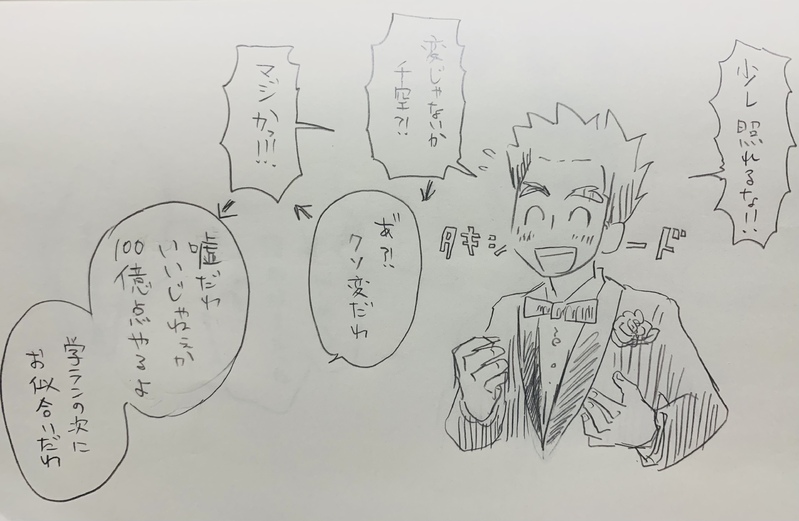 少し照れるな!!
タキシード
変じゃないか
千空?!
あ゙?!
クソ変だわ
マジかっ!!!
嘘だわ
いいじゃねぇか
100億点やるよ
学ランの次に
お似合いだわ